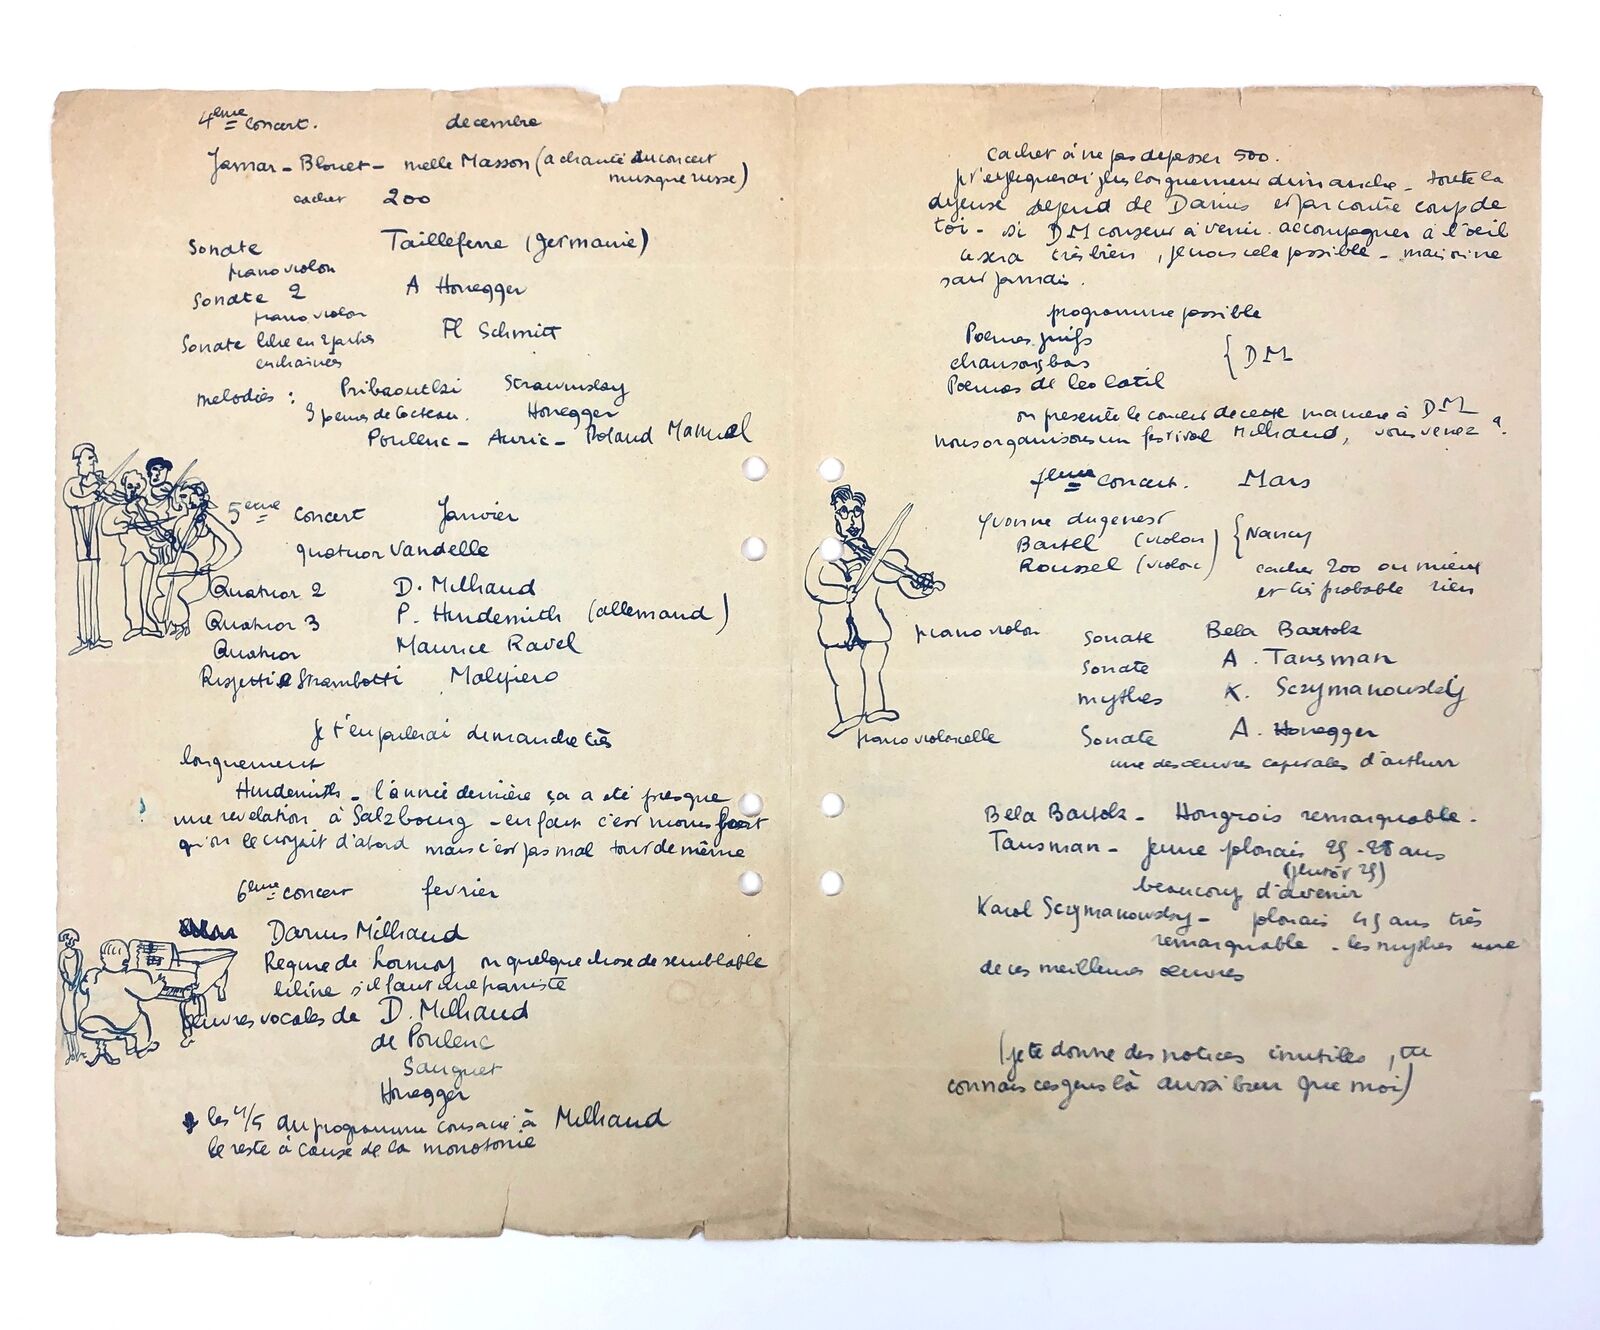 4eme concert. decembre
Jamar - Blouet - melle Masson (a chanté au concert
musique russe)
cachet 200
Sonate Tailleferre (Germanie)
piano violon
Sonate 2 A Honegger
piano violon
Sonate libre en 2 parties Fl Schmitt
enchainées
melodies : Pribaoutki Strawinsky
3 pemes de Cocteau. Honegger
Poulenc - Auric - Roland Manuel
5eme concert Janvier
quatuor Vandelle
Quatuor 2 D. Milhaud
Quatuor 3 P. Hindemith (allemand)
Quatuor Maurice Ravel
Rispetti e Strambotti Malipiero
Je t'en parlerai dimanche très
longuement
Hindemith - l'année dernière ça a été presque
une revelation à Salzbourg - en fait c'est moins fort
qu'on le croyait d'abord mais c'est pas mal tout de même
6eme concert fevrier
Darius Milhaud
Regine de Lormoy ou quelque chose de semblable
liline s'il faut une pianiste
oeuvres vocales de D. Milhaud
de Poulenc
Sauguet
Honegger
les 4/5 du programme consacré à Milhaud
le reste à cause de la monotonie
cachet à ne pas depasser 500.
je t'expliquerai plus longuement dimanche - toute la
depense depend de Darius et par contre coup de
toi - si DM consent à venir accompagner à l'oeil
ce sera très bien, je crois cela possible - mais on ne
sait jamais.
programme possible
Poemes juifs
chansons bas { DM
Poemes de Leo Latil
on presente le concert de cette maniere à DM
nous organisons un festival Milhaud, vous venez ?
7eme concert. Mars
Yvonne dugenest
Bartel (violon) { Nancy
Roussel (violonc)
cachet 200 ou mieux
et très probable rien
piano violon Sonate Bela Bartok
Sonate A. Tansman
mythes K. Sczymanowsky
piano violoncelle Sonate A. Honegger
une des oeuvres capitales d'arthur
Béla Bartok - Hongrois remarquable.
Tansman - jeune polonais 25-28 ans
(plutôt 25)
beaucoup d'avenir
Karol Sczymanowsky - polonais 45 ans très
remarquable - les mythes une
de ces meilleures oeuvres
(je te donne des notices inutiles, tu
connais ces gens là aussi bien que moi)